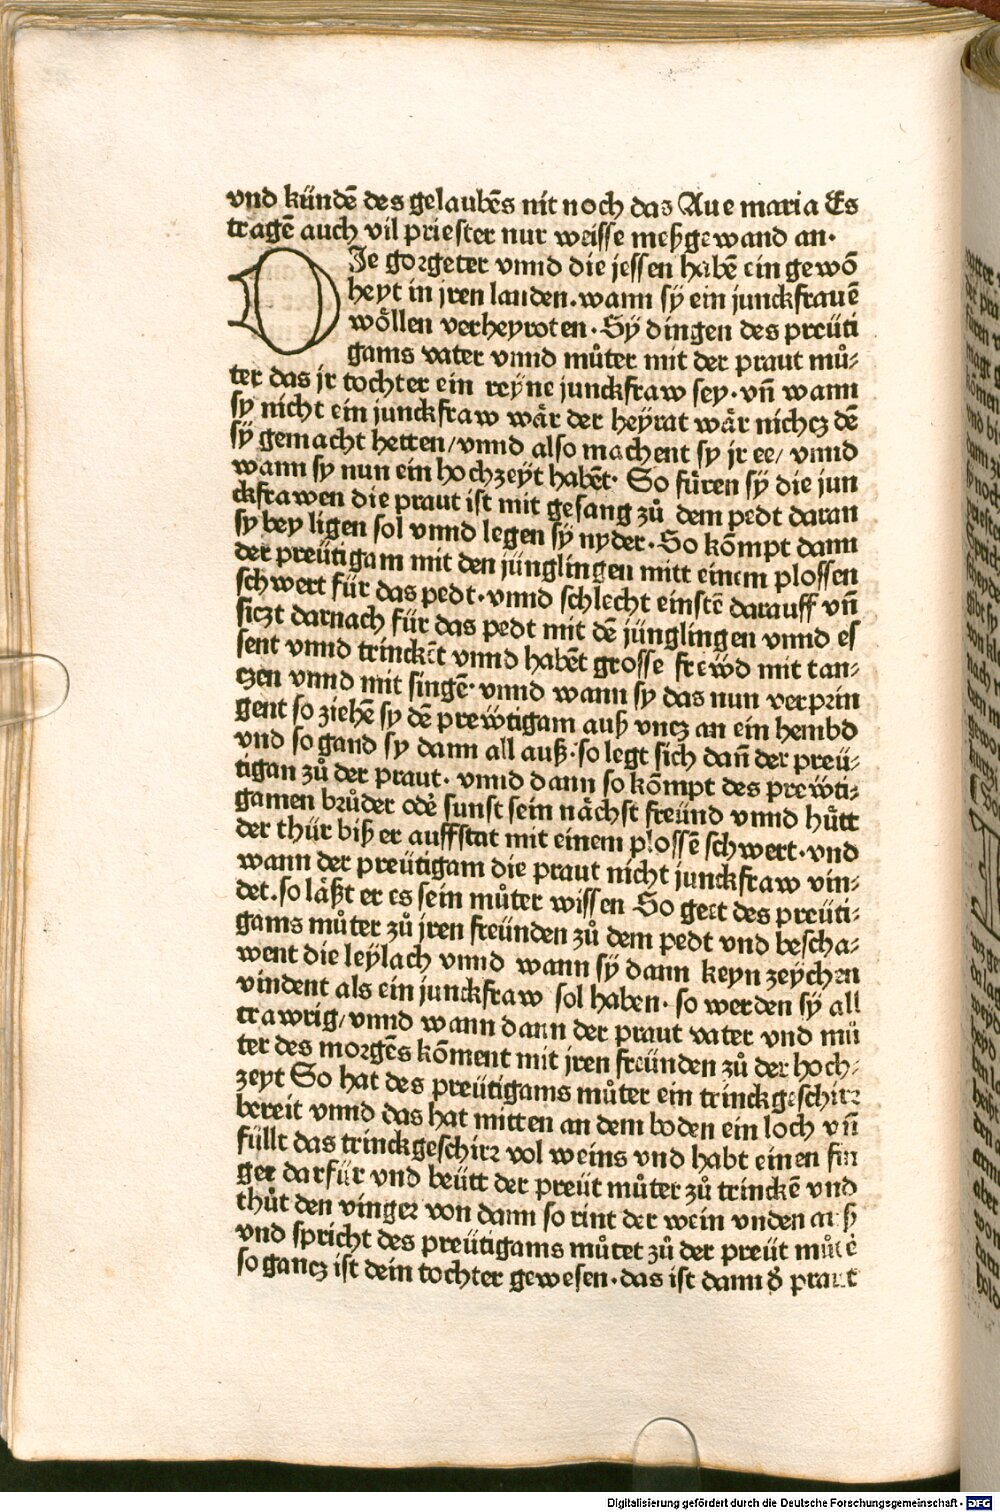 vnd kündē des gelaubēs nit noch das Aue maria Es
tragē auch vil priester nur weisse meßgewand an.
DJe gorgeter vnnd die jessen habē ein gewō
heyt in jren landen. wann sÿ ein junckfrauē
wöllen verheyroten. Sÿ dingen des preüti
gams vater vnnd můter mit der praut mů⸗
ter das jr tochter ein reÿne junckfraw sey. vn̄ wann
sy nicht ein junckfraw wär der heÿrat wär nichcz dē
sÿ gemacht hetten/ vnnd also machent sy jr ee/ vnnd
wann sy nun ein hochzeyt habēt. So fůren sÿ die jun
ckfrawen die praut ist mit gesang zů dem pedt daran
sy bey ligen sol vnnd legen sÿ nyder. So kōmpt dann
der preütigam mit den jünglingen mitt einem plossen
schwert für das pedt. vnnd schlecht einstē darauff vn̄
siczt darnach für das pedt mit dē jünglingen vnnd es
sent vnnd trinckēt vnnd habēt grosse frewd mit tan⸗
czen vnnd mit singē. vnnd wann sy das nun verprin
gent so ziehē sy dē prewtigam auß vncz an ein hembd
vnd so gand sy dann all auß. so legt sich dan̄ der preü⸗
tigan zů der praut. vnnd dann so kōmpt des prewti⸗
gamen brůder oder sunst sein nächst freünd vnnd hütt
der thür biß er auffstat mit einem plossē schwert. vnd
wann der preütigam die praut nicht junckfraw vin⸗
det. so läßt er es sein můter wissen So geet des preüti⸗
gams můter zů jren freünden zů dem pedt vnd bescha⸗
went die leÿlach vnnd wann sÿ dann keyn zeÿchen
vindent als ein junckfraw sol haben. so werden sÿ all
trawrig/ vnnd wann dann der praut vater vnd mů
ter des morgēs kōment mit jren freünden zů der hoch⸗
zeyt So hat des preütigams můter ein trinckgeschirr
bereit vnnd das hat mitten an dem boden ein loch vn̄
füllt das trinckgeschirr vol weins vnd habt einen fin
ger darfür vnd beütt der preüt můter zů trinckē vnd
thůt den vinger von dann so rint der wein vnden auß
vnd spricht des preütigams můter zů der preüt můter
so gancz ist dein tochter gewesen. das ist dann der praut
Digitalisierung gefördert durch die Deutsche Forschungsgemeinschaft - DFG